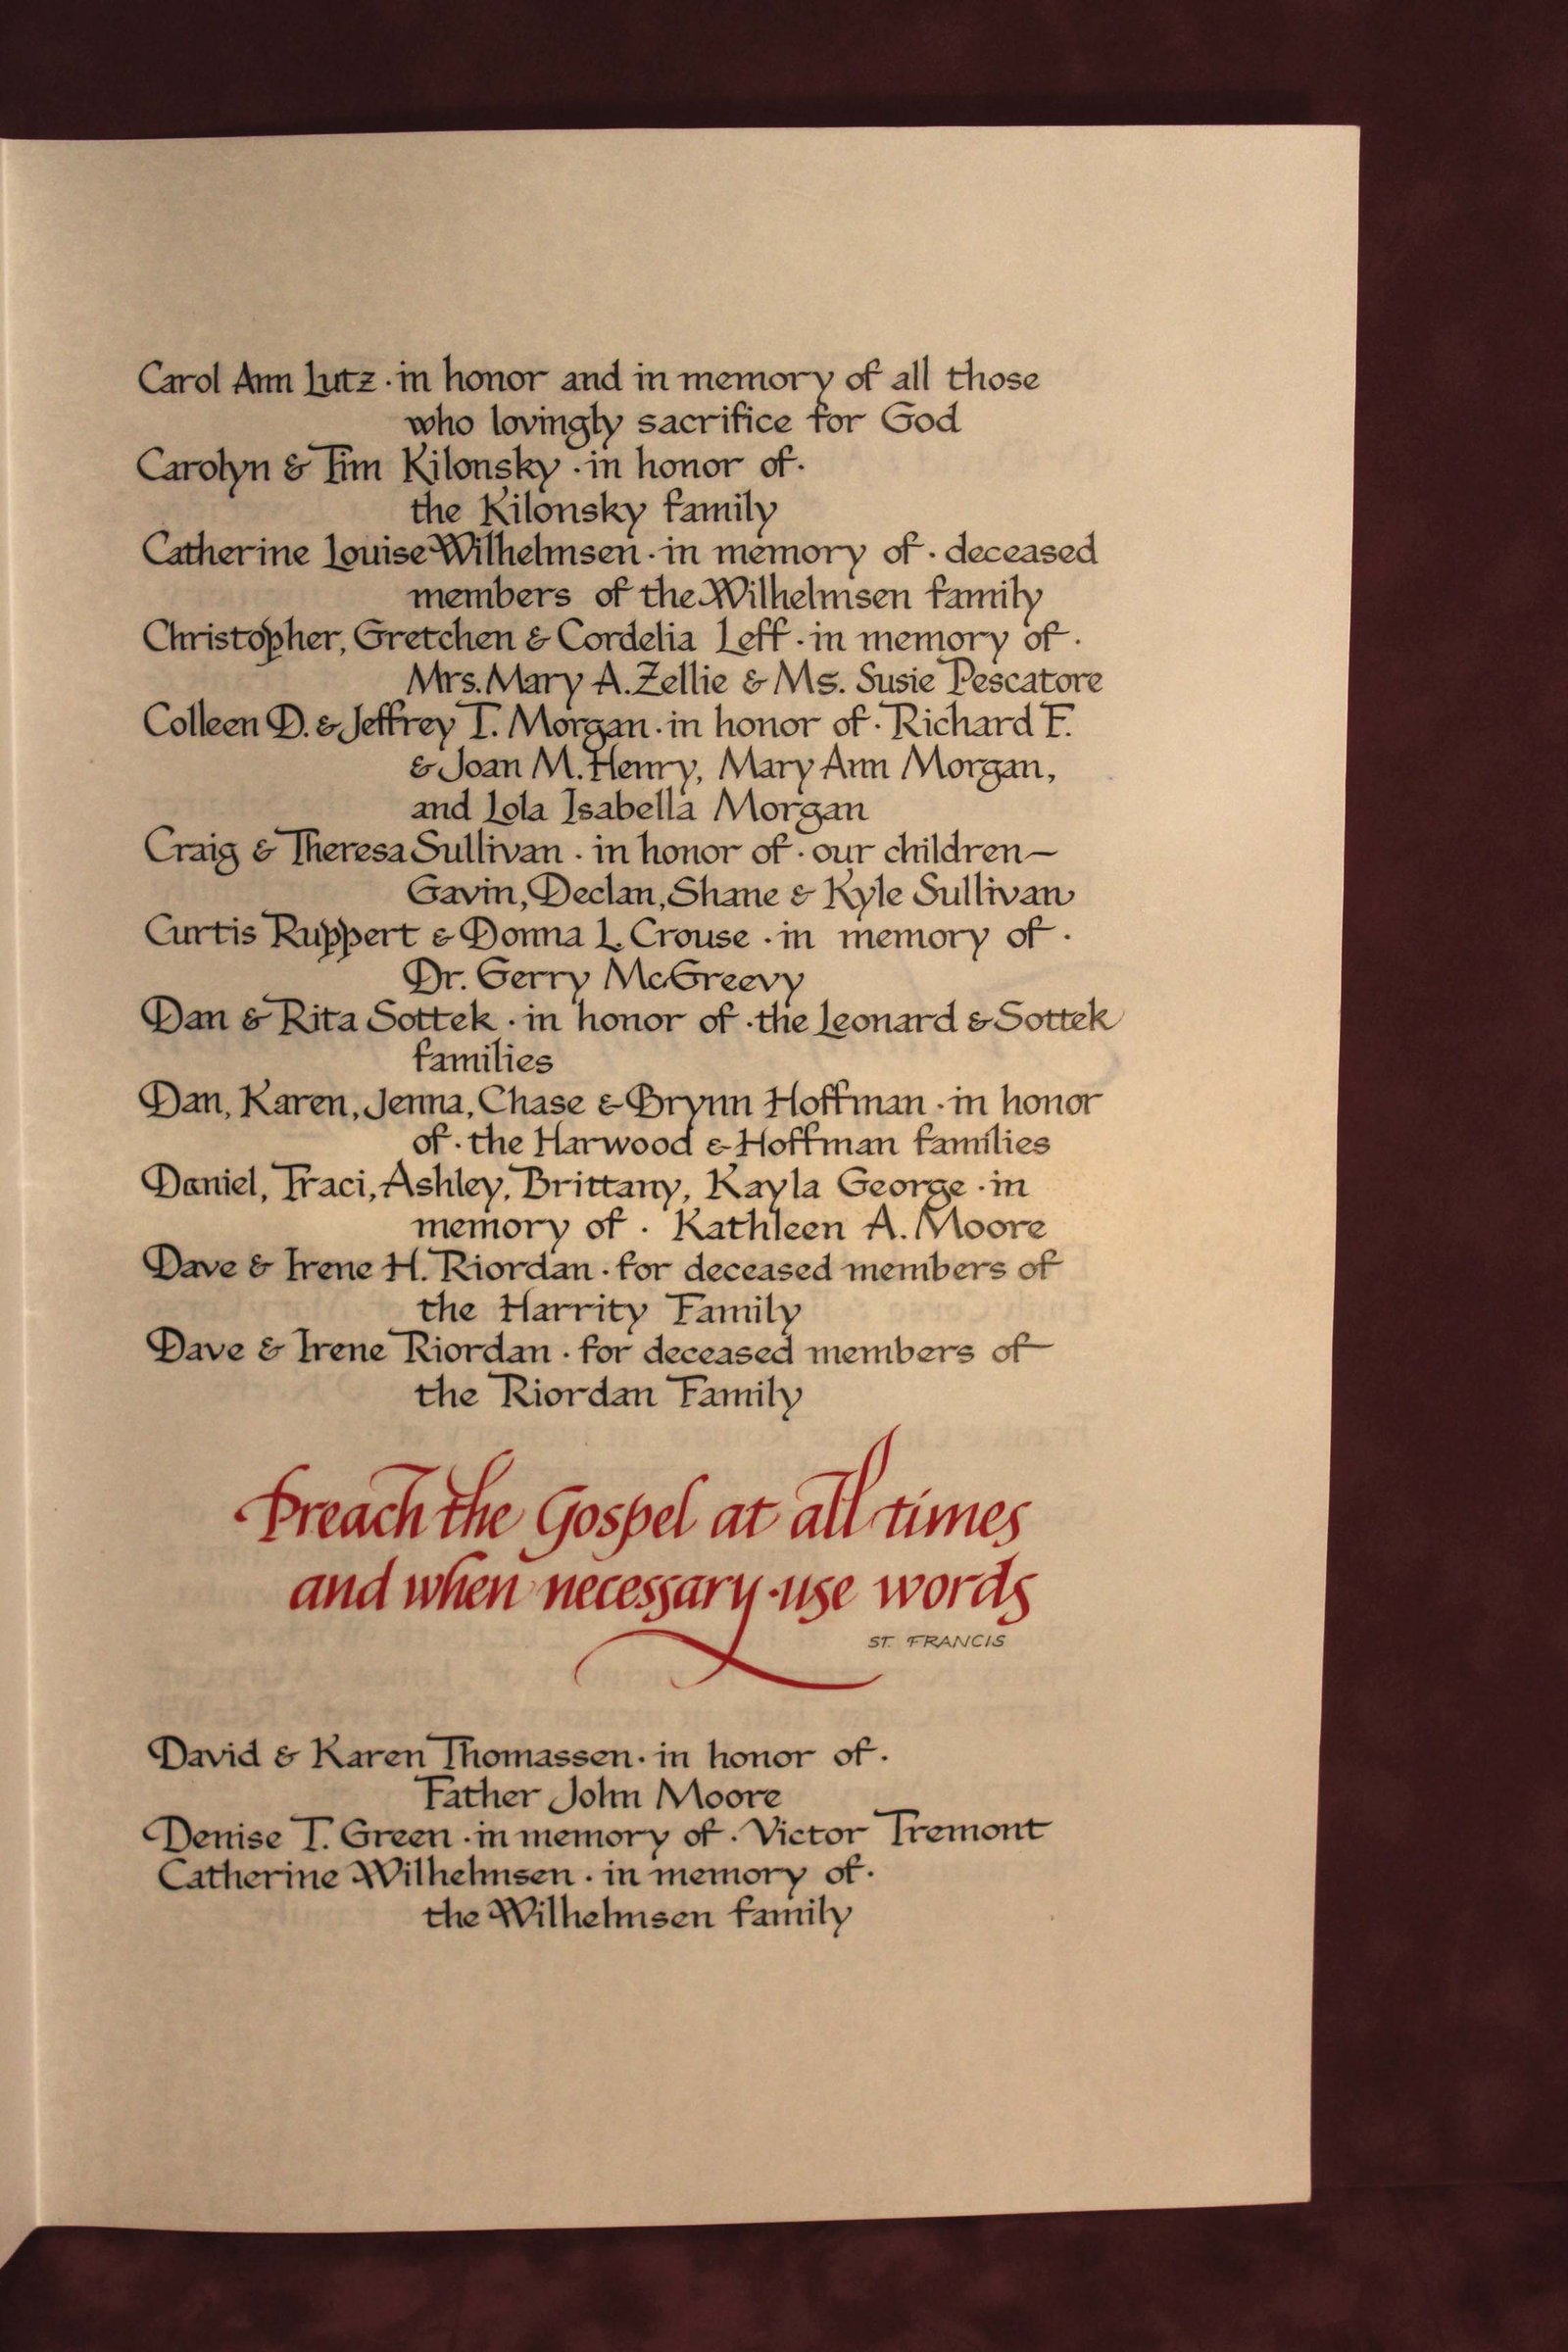 Carol Ann Lutz · in honor and in memory of all those
who lovingly sacrifice for God
Carolyn & Tim Kilonsky · in honor of ·
the Kilonsky family
Catherine Louise Wilhelmsen · in memory of · deceased
members of the Wilhelmsen family
Christopher, Gretchen & Cordelia Leff · in memory of ·
Mrs. Mary A. Zellie & Ms. Susie Pescatore
Colleen D. & Jeffrey T. Morgan · in honor of · Richard F.
& Joan M. Henry, Mary Ann Morgan,
and Lola Isabella Morgan
Craig & Theresa Sullivan · in honor of · our children—
Gavin, Declan, Shane & Kyle Sullivan
Curtis Ruppert & Donna L. Crouse · in memory of ·
Dr. Gerry McGreevy
Dan & Rita Sottek · in honor of · the Leonard & Sottek
families
Dan, Karen, Jenna, Chase & Brynn Hoffman · in honor
of · the Harwood & Hoffman families
Daniel, Traci, Ashley, Brittany, Kayla George · in
memory of · Kathleen A. Moore
Dave & Irene H. Riordan · for deceased members of
the Harrity Family
Dave & Irene Riordan · for deceased members of
the Riordan Family
Preach the Gospel at all times
and when necessary · use words
ST. FRANCIS
David & Karen Thomassen · in honor of ·
Father John Moore
Denise T. Green · in memory of · Victor Tremont
Catherine Wilhelmsen · in memory of ·
the Wilhelmsen family